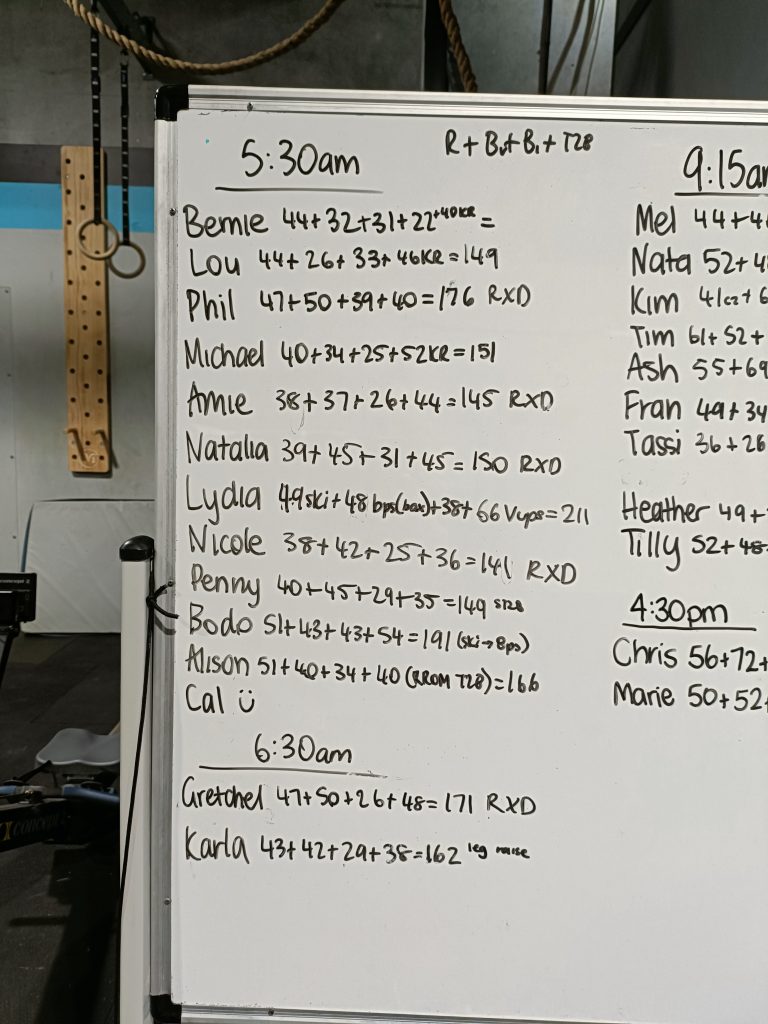 R + B + B1 + T2B
5:30am
Bernie 44+32+31+22+40KR =
Lou 44+26+33+46KR=149
Phil 47+50+39+40=176 RXD
Michael 40+34+25+52KR=151
Amie 38+37+26+44=145 RXD
Natalia 39+45+31+45=150 RXD
Lydia 49ski+48 bps(bar)+38+66 Vups=211
Nicole 38+42+25+36=141 RXD
Penny 40+45+29+35=149
Bodo 51+43+43+54=191 (ski→Bps)
Alison 51+40+34+40 (RROM T2B)=166
Cal
6:30am
Gretchel 47+50+26+48=171 RXD
Karla 43+42+29+38=162 leg raise
9:15a
Mel 44+4
Nata 52+4
Kim 41
Tim 61+52+
Ash 55+69
Fran 49+34
Tassi 36+26
Heather 49+
Tilly 52+48
4:30pm
Chris 56+72+
Marie 50+52+
concept 2
concept